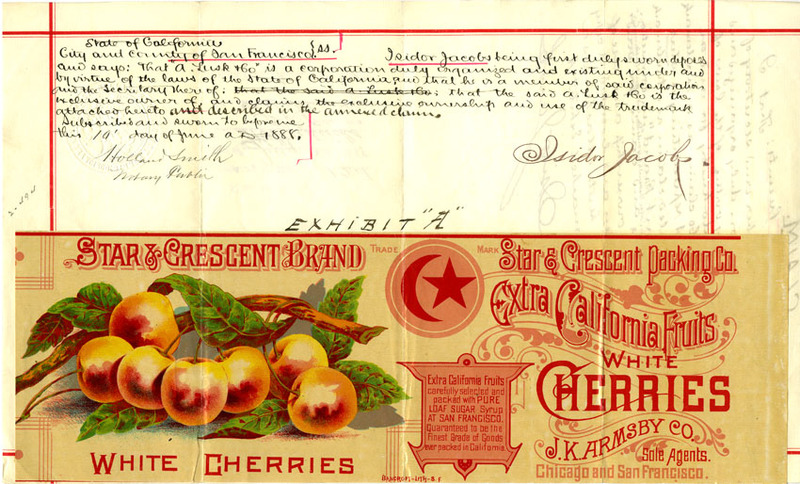 State of California
City and county of San Francisco } ss. Isidor Jacobs being first duly sworn deposes
and says: That A. Lusk & Co is a corporation duly organized and existing under and
by virtue of the laws of the State of California, and that he is a member of said corporation
and the Secretary thereof; that the said A Lusk & Co; that the said A. Lusk & Co is the
exclusive owner of and claims the exclusive ownership and use of the trademark
attached hereto and described in the annexed claim.
Subscribed and sworn to before me
this 19 day of June A D 1888.
Holland Smith
Notary Public
Isidor Jacobs.
EXHIBIT "A"
STAR & CRESCENT BRAND
TRADE MARK
Star & Crescent Packing Co.
Extra California Fruits
WHITE
CHERRIES
Extra California Fruits
carefully selected and
packed with PURE
LOAF SUGAR Syrup
AT SAN FRANCISCO.
Guaranteed to be the
Finest Grade of Goods
ever packed in California
J.K. ARMSBY CO.
Sole Agents.
Chicago and San Francisco.
WHITE CHERRIES